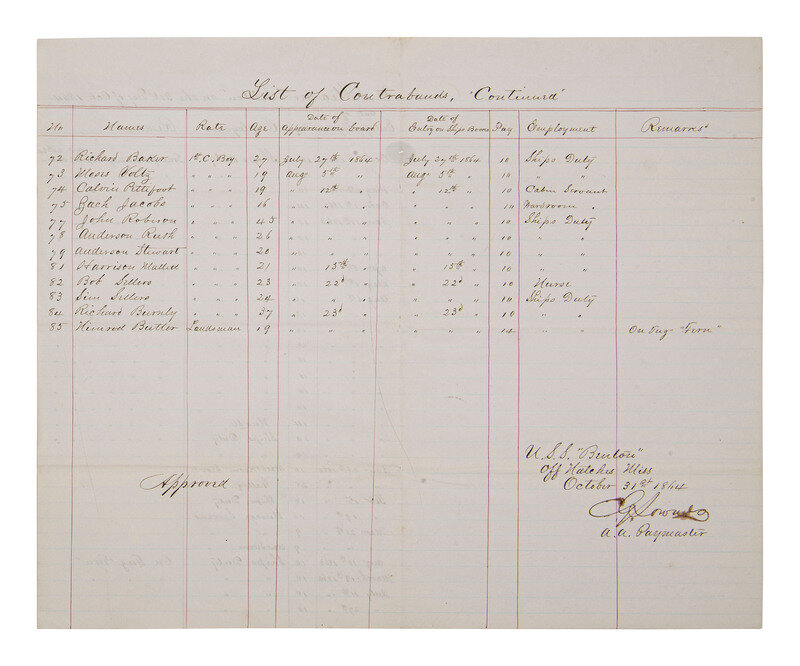 List of Contrabands, "Continued"
No Names Rate Age Date of Appearance on board Date of Entry on Ships Books Pay Employment Remarks
72 Richard Baker 1st C. Boy 27 July 27th 1864 July 27th 1864 10 Ships Duty
73 Moses Voltz " " " 19 Aug 5th " Aug 5th " 10 " "
74 Calvin Pettefoot " " " 19 " 12th " " 12th " 10 Cabin Servant
75 Zach Jacobs " " " 16 " " " " " " 10 Wardroom "
77 John Robison " " " 45 " " " " " " 10 Ships Duty
78 Anderson Rush " " " 26 " " " " " " 10 " "
79 Anderson Stewart " " " 20 " " " " " " 10 " "
81 Harrison " " " 21 " 15th " " 15th " 10 " "
82 Bob Sellers " " " 23 " 22d " " 22d " 10 Nurse
83 Sim Sellers " " " 24 " " " " " " 10 Ships Duty
84 Richard Burnly " " " 37 " 23d " " 23d " 10 " "
85 Nimrod Butler Landsman 19 " " " " " " 14 " " On Tug "Fern"
U.S.S. "Benton"
Off Natches Miss
October 31st 1864
Approved
A. A. Paymaster